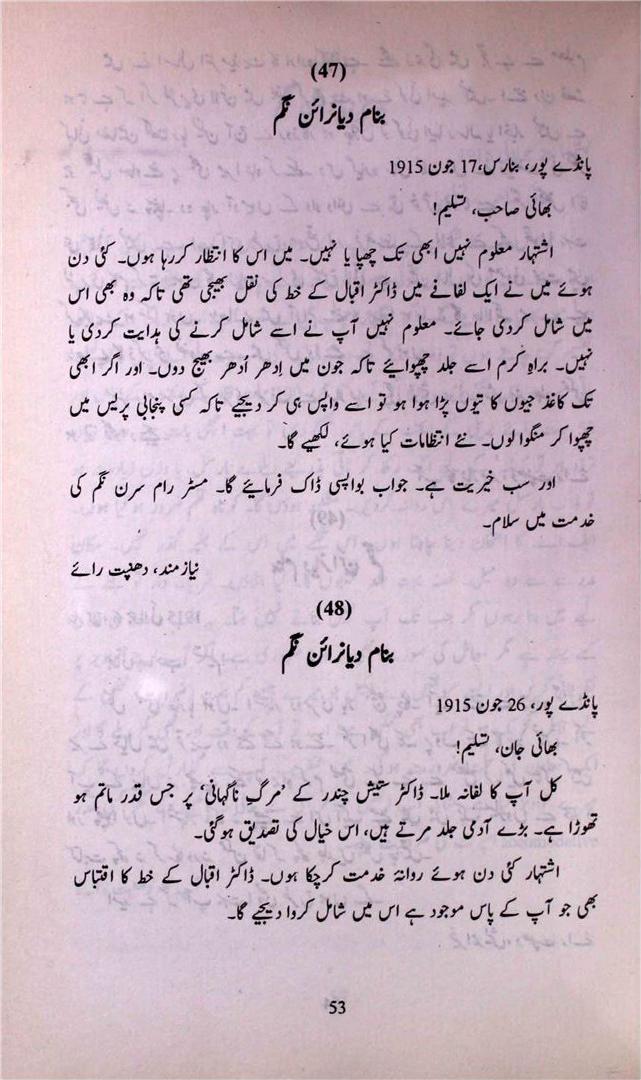 (47)
بنام دیانرائن نگم
پانڈے پور، بنارس، 17 جون 1915
بھائی صاحب، تسلیم!
اشتہار معلوم نہیں ابھی تک چھپا یا نہیں۔ میں اس کا انتظار کررہا ہوں۔ کئی دن
ہوئے میں نے ایک لفافے میں ڈاکٹر اقبال کے خط کی نقل بھیجی تھی تاکہ وہ بھی اس
میں شامل کردی جائے۔ معلوم نہیں آپ نے اسے شامل کرنے کی ہدایت کردی یا
نہیں۔ براہِ کرم اسے جلد چھپوائیے تاکہ جون میں اِدھر اُدھر بھیج دوں۔ اور اگر ابھی
تک کاغذ جیوں کا تیوں پڑا ہوا ہو تو اسے واپس ہی کر دیجیے تاکہ کسی پنجابی پریس میں
چھپوا کر منگوا لوں۔ نئے انتظامات کیا ہوئے، لکھیے گا۔
اور سب خیریت ہے۔ جواب بواپسی ڈاک فرمائیے گا۔ مسٹر رام سرن نگم کی
خدمت میں سلام۔
نیازمند، دھنپت رائے
(48)
بنام دیانرائن نگم
پانڈے پور، 26 جون 1915
بھائی جان، تسلیم!
کل آپ کا لفافہ ملا۔ ڈاکٹر ستیش چندر کے ’مرگِ ناگہانی‘ پر جس قدر ماتم ہو
تھوڑا ہے۔ بڑے آدمی جلد مرتے ہیں، اس خیال کی تصدیق ہوگئی۔
اشتہار کئی دن ہوئے روانۂ خدمت کرچکا ہوں۔ ڈاکٹر اقبال کے خط کا اقتباس
بھی جو آپ کے پاس موجود ہے اس میں شامل کروا دیجیے گا۔
53